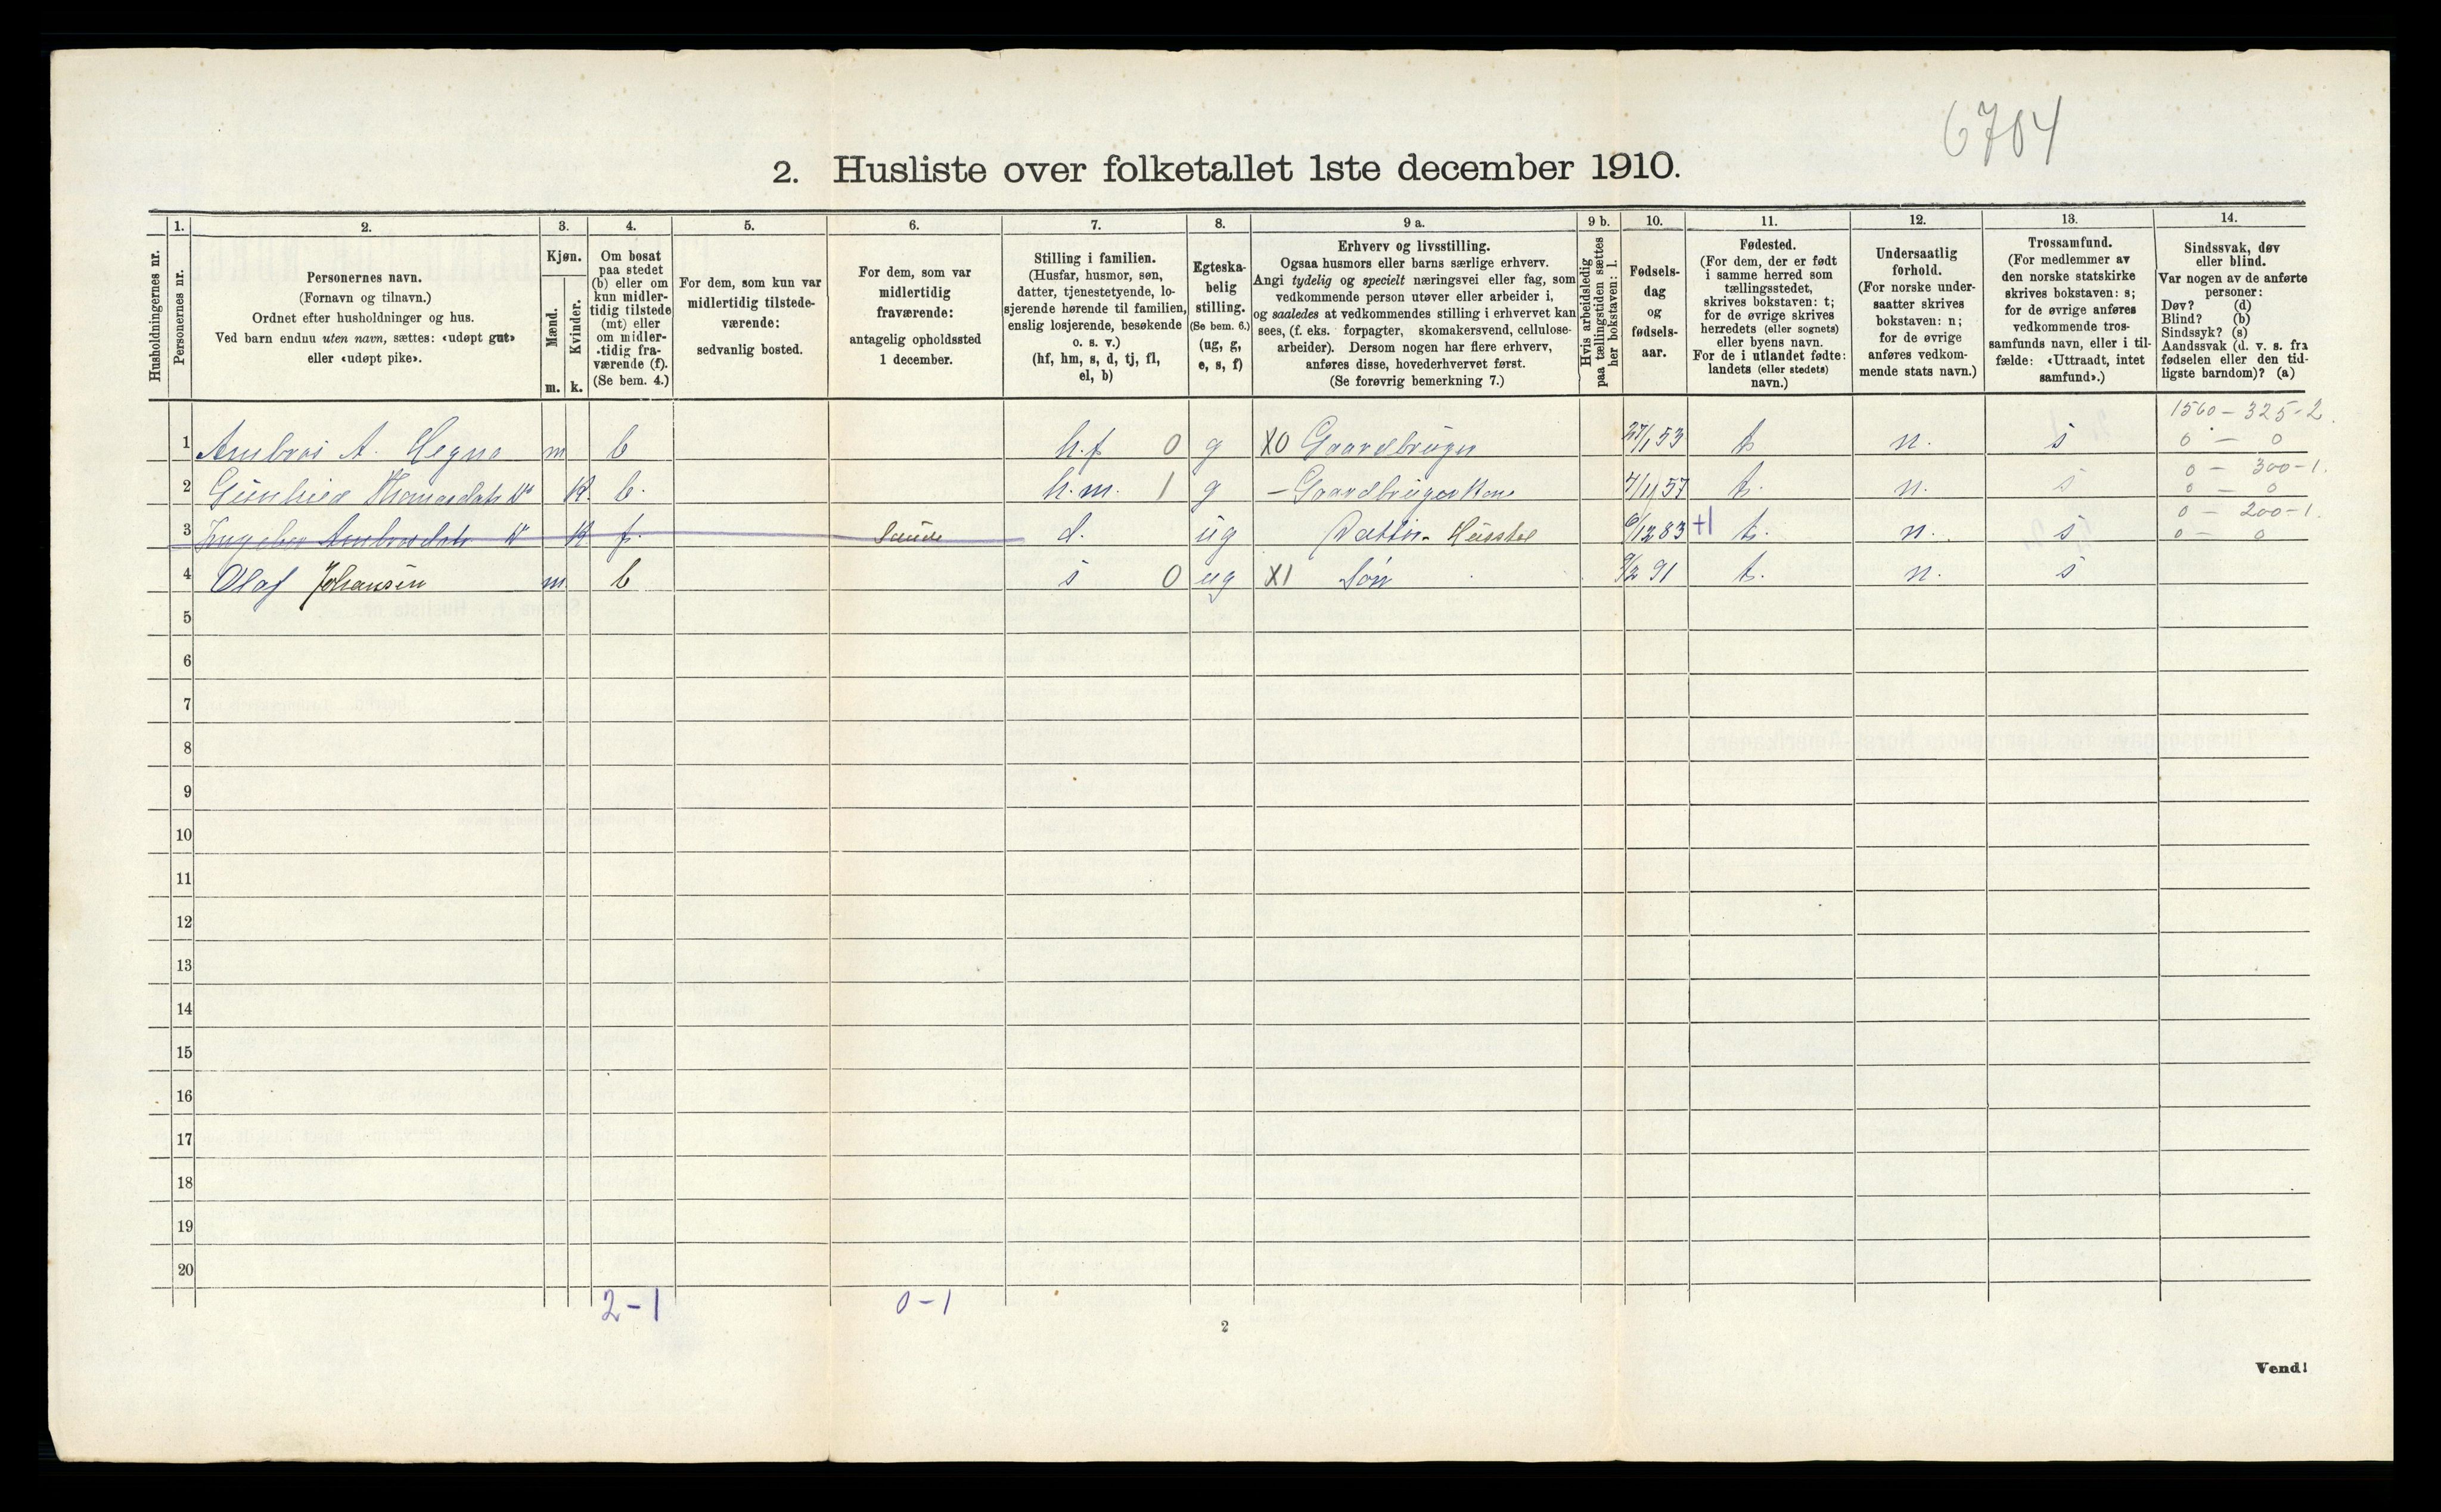 6704
2. Husliste over folketallet 1ste december 1910.
Husholdningernes nr.
1.
Personernes nr.
2.
Personernes navn.
(Fornavn og tilnavn.)
Ordnet efter husholdninger og hus.
Ved barn endnu uten navn, sættes: «udøpt gut»
eller «udøpt pike».
3.
Kjøn.
Mænd.
Kvinder.
m. k.
4.
Om bosat
paa stedet
(b) eller om
kun midler-
tidig tilstede
(mt) eller
om midler-
tidig fra-
værende (f).
(Se bem. 4.)
5.
For dem, som kun var
midlertidig tilstede-
værende:
sedvanlig bosted.
6.
For dem, som var
midlertidig
fraværende:
antagelig opholdssted
1 december.
7.
Stilling i familien.
(Husfar, husmor, søn,
datter, tjenestetyende, lo-
sjerende hørende til familien,
enslig losjerende, besøkende
o. s. v.)
(hf, hm, s, d, tj, fl,
el, b)
8.
Egteska-
belig
stilling.
(Se bem. 6.)
(ug, g,
e, s, f)
9 a.
Erhverv og livsstilling.
Ogsaa husmors eller barns særlige erhverv.
Angi tydelig og specielt næringsvei eller fag, som
vedkommende person utøver eller arbeider i,
og saaledes at vedkommendes stilling i erhvervet kan
sees, (f. eks. forpagter, skomakersvend, cellulose-
arbeider). Dersom nogen har flere erhverv,
anføres disse, hovederhvervet først.
(Se forøvrig bemerkning 7.)
9 b.
Hvis arbeidsledig
paa tællingstiden sættes
her bokstaven: l.
10.
Fødsels-
dag
og
fødsels-
aar.
11.
Fødested.
(For dem, der er født
i samme herred som
tællingsstedet,
skrives bokstaven: t;
for de øvrige skrives
herredets (eller sognets)
eller byens navn.
For de i utlandet fødte:
landets (eller stedets)
navn.)
12.
Undersaatlig
forhold.
(For norske under-
saatter skrives
bokstaven: n;
for de øvrige
anføres vedkom-
mende stats navn.)
13.
Trossamfund.
(For medlemmer av
den norske statskirke
skrives bokstaven: s;
for de øvrige anføres
vedkommende tros-
samfunds navn, eller i til-
fælde: «Uttraadt, intet
samfund».)
14.
Sindssvak, døv
eller blind.
Var nogen av de anførte
personer:
Døv? (d)
Blind? (b)
Sindssyk? (s)
Aandssvak (d. v. s. fra
fødselen eller den tid-
ligste barndom)? (a)
1560 - 325-2.
1 Ambros A. Hegna m b h.f 0 g X0 Gaardbruger 27/1 53 t. n. s 0 - 0
0 - 300-1.
2 k. b. h.m. 1 g - Gaardbruger Kone 57 t. n. s 0 - 0
0 - 200-1.
3 Ingebor Ambrosdatr k f. d. ug Datter 6/12 83 +1 t. n. s 0 - 0
4 Olaf Johansen m b s 0 ug X1 Søn /2 91 t. n. s
5
6
7
8
9
10
11
12
13
14
15
16
17
18
19
20
2-1 0-1
2
Vend!